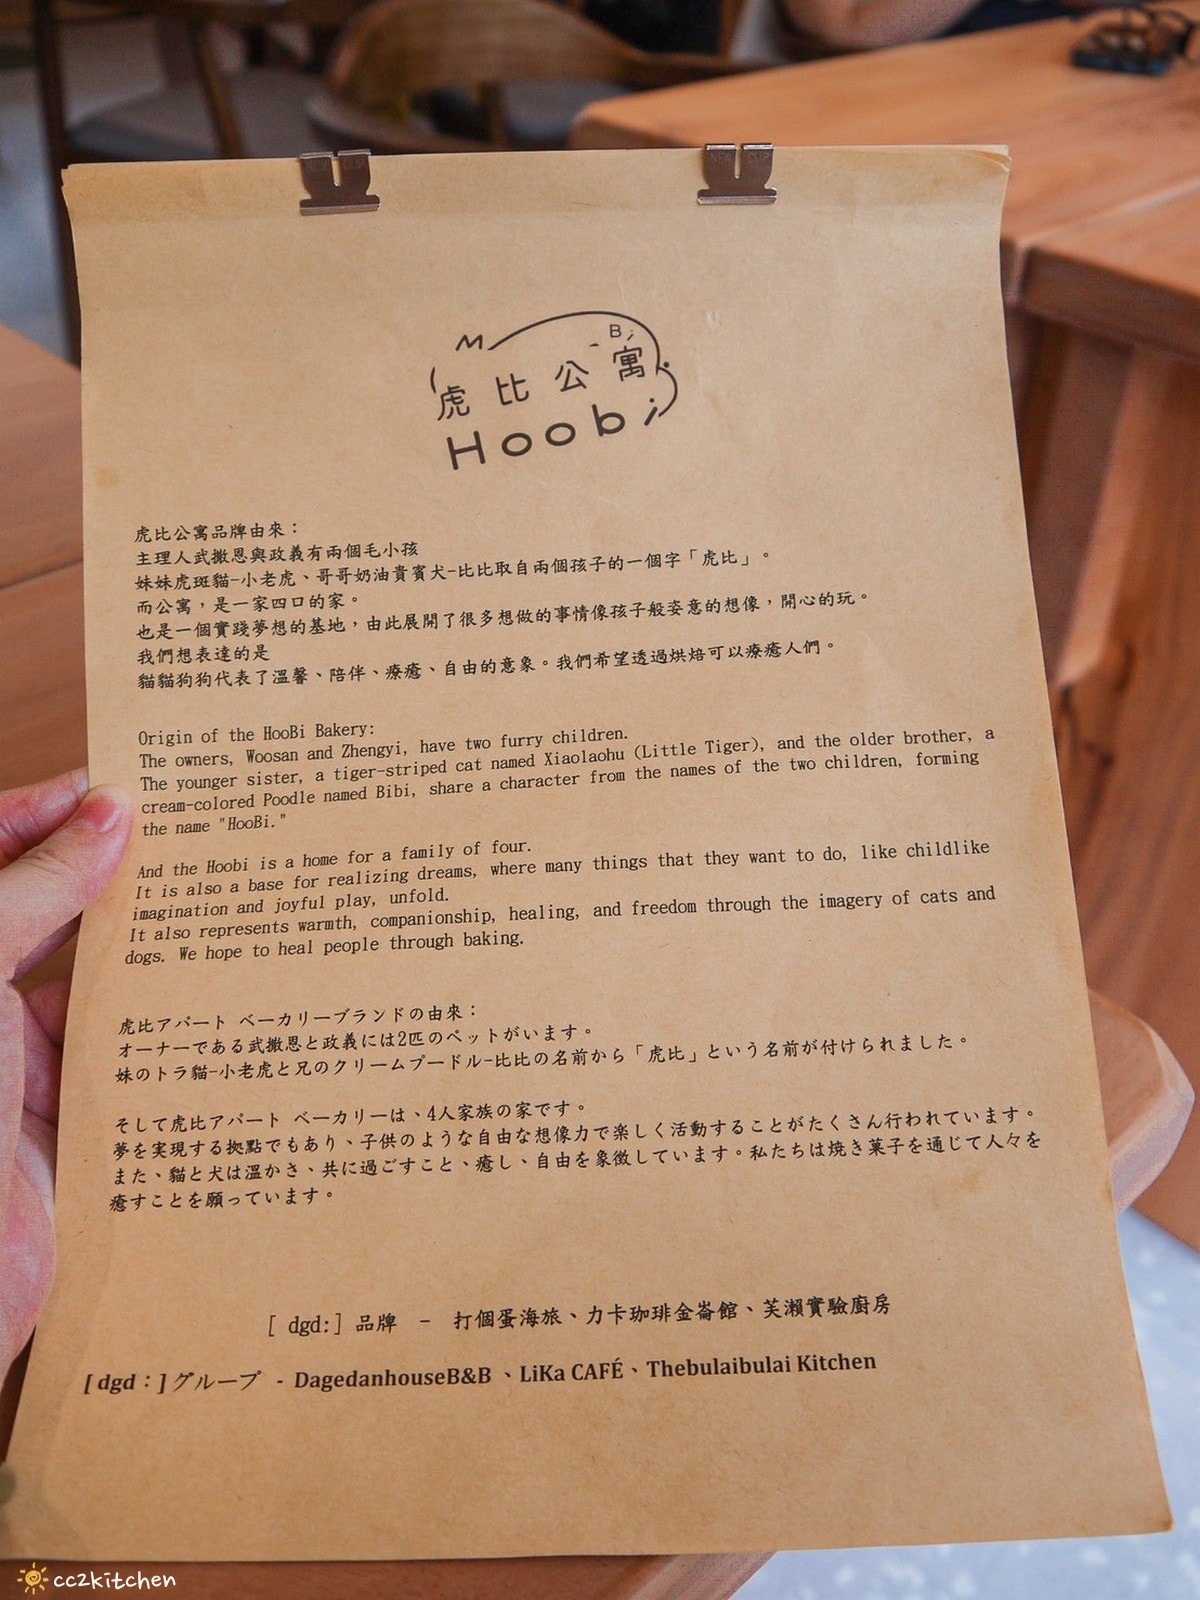 Bi
虎比公寓
Hoobi
虎比公寓品牌由來：
主理人武撒恩與政義有兩個毛小孩
妹妹虎斑貓-小老虎、哥哥奶油貴賓犬-比比取自兩個孩子的一個字「虎比」。
而公寓，是一家四口的家。
也是一個實踐夢想的基地，由此展開了很多想做的事情像孩子般姿意的想像，開心的玩。
我們想表達的是
貓貓狗狗代表了溫馨、陪伴、療癒、自由的意象。我們希望透過烘焙可以療癒人們。
Origin of the HooBi Bakery:
The owners, Woosan and Zhengyi, have two furry children.
The younger sister, a tiger-striped cat named Xiaolaohu (Little Tiger), and the older brother, a
cream-colored Poodle named Bibi, share a character from the names of the two children, forming
the name "HooBi."
And the Hoobi is a home for a family of four.
It is also a base for realizing dreams, where many things that they want to do, like childlike
imagination and joyful play, unfold.
It also represents warmth, companionship, healing, and freedom through the imagery of cats and
dogs. We hope to heal people through baking.
虎比アパート ベーカリーブランドの由來：
オーナーである武撒恩と政義には2匹のペットがいます。
妹のトラ貓-小老虎と兄のクリームプードル-比比の名前から「虎比」という名前が付けられました。
そして虎比アパート ベーカリーは、4人家族の家です。
夢を実現する拠點でもあり、子供のような自由な想像力で楽しく活動することがたくさん行われています。
また、貓と犬は溫かさ、共に過ごすこと、癒し、自由を象徴しています。私たちは焼き菓子を通じて人々を
癒すことを願っています。
[ dgd:] 品牌 - 打個蛋海旅、力卡珈琲金崙館、芙瀨實驗廚房
[ dgd：]グループ - DagedanhouseB&B 、LiKa CAFÉ、Thebulaibulai Kitchen
cc2kitchen